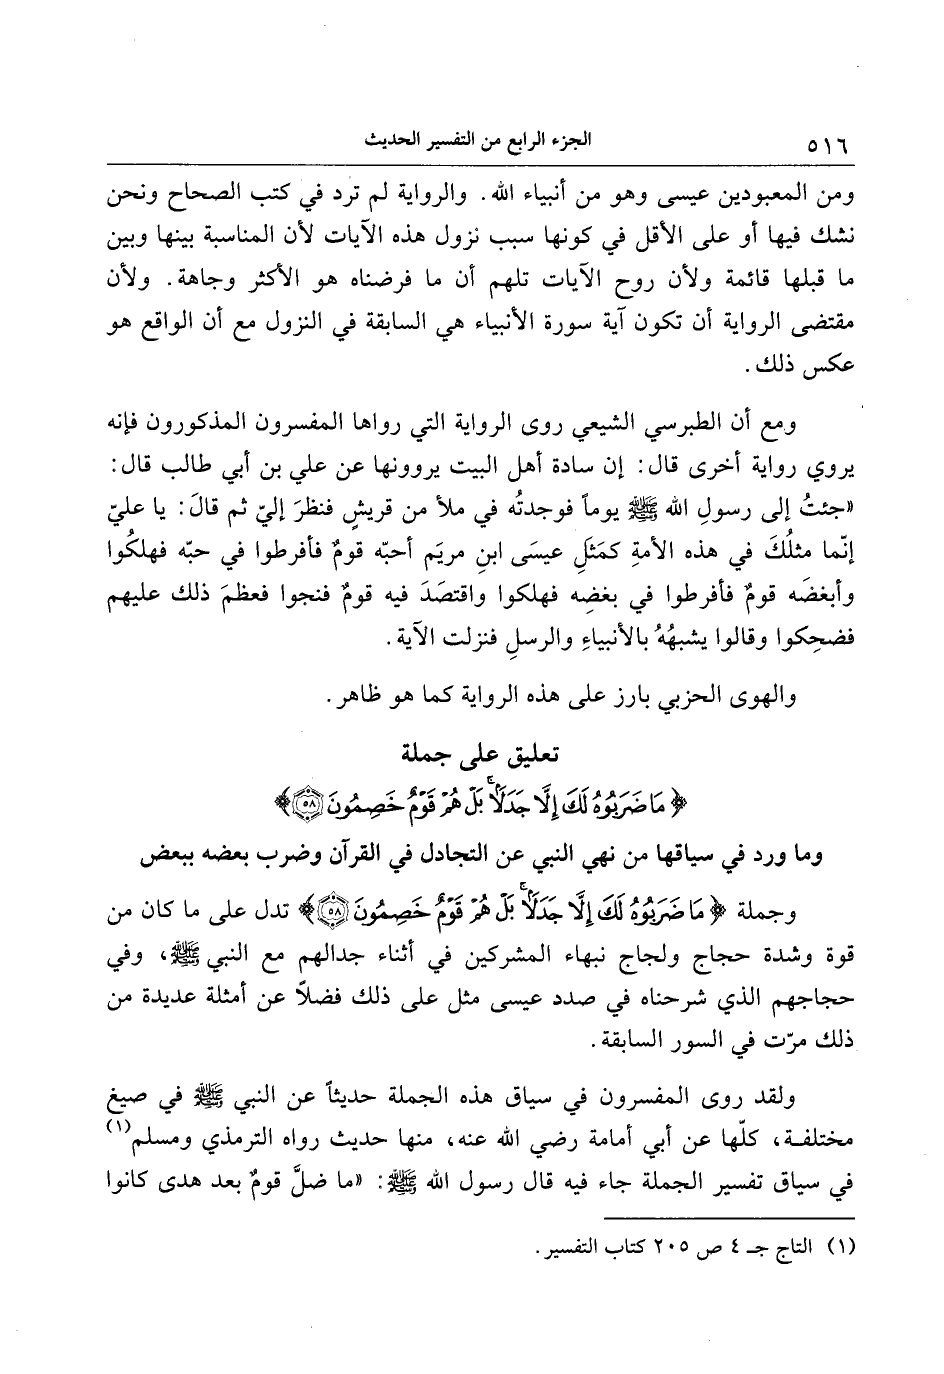 ٥١٦ الجزء الرابع من التفسير الحديث
ومن المعبودين عيسى وهو من أنبياء الله. والرواية لم ترد في كتب الصحاح ونحن
نشك فيها أو على الأقل في كونها سبب نزول هذه الآيات لأن المناسبة بينها وبين
ما قبلها قائمة ولأن روح الآيات تلهم أن ما فرضناه هو الأكثر وجاهة. ولأن
مقتضى الرواية أن تكون آية سورة الأنبياء هي السابقة في النزول مع أن الواقع هو
عكس ذلك.
ومع أن الطبرسي الشيعي روى الرواية التي رواها المفسرون المذكورون فإنه
يروي رواية أخرى قال: إن سادة أهل البيت يروونها عن علي بن أبي طالب قال:
«جئتُ إلى رسولِ الله ﷺ يوماً فوجدتُه في ملأ من قريشٍ فنظرَ إليّ ثم قالَ: يا عليّ
إنّما مثلُكَ في هذه الأمةِ كمَثَلِ عيسَى ابنِ مريَم أحبّه قومٌ فأفرطوا في حبّه فهلكُوا
وأبغضَه قومٌ فأفرطوا في بغضِه فهلكوا واقتصَدَ فيه قومٌ فنجوا فعظمَ ذلك عليهم
فضحِكوا وقالوا يشبهُهُ بالأنبياءِ والرسلِ فنزلت الآية.
والهوى الحزبي بارز على هذه الرواية كما هو ظاهر.
تعليق على جملة
﴿مَا ضَرَبُوهُ لَكَ إِلَّا جَدَلًاۚ بَلْ هُمْ قَوْمٌ خَصِمُونَ ٥٨﴾
وما ورد في سياقها من نهي النبي عن التجادل في القرآن وضرب بعضه ببعض
وجملة ﴿مَا ضَرَبُوهُ لَكَ إِلَّا جَدَلًاۚ بَلْ هُمْ قَوْمٌ خَصِمُونَ ٥٨﴾ تدل على ما كان من
قوة وشدة حجاج ولجاج نبهاء المشركين في أثناء جدالهم مع النبي ﷺ، وفي
حجاجهم الذي شرحناه في صدد عيسى مثل على ذلك فضلاً عن أمثلة عديدة من
ذلك مرّت في السور السابقة.
ولقد روى المفسرون في سياق هذه الجملة حديثاً عن النبي ﷺ في صيغ
مختلفة، كلّها عن أبي أمامة رضي الله عنه، منها حديث رواه الترمذي ومسلم(١)
في سياق تفسير الجملة جاء فيه قال رسول الله ﷺ: «ما ضلَّ قومٌ بعد هدى كانوا
(١) التاج جـ ٤ ص ٢٠٥ كتاب التفسير.